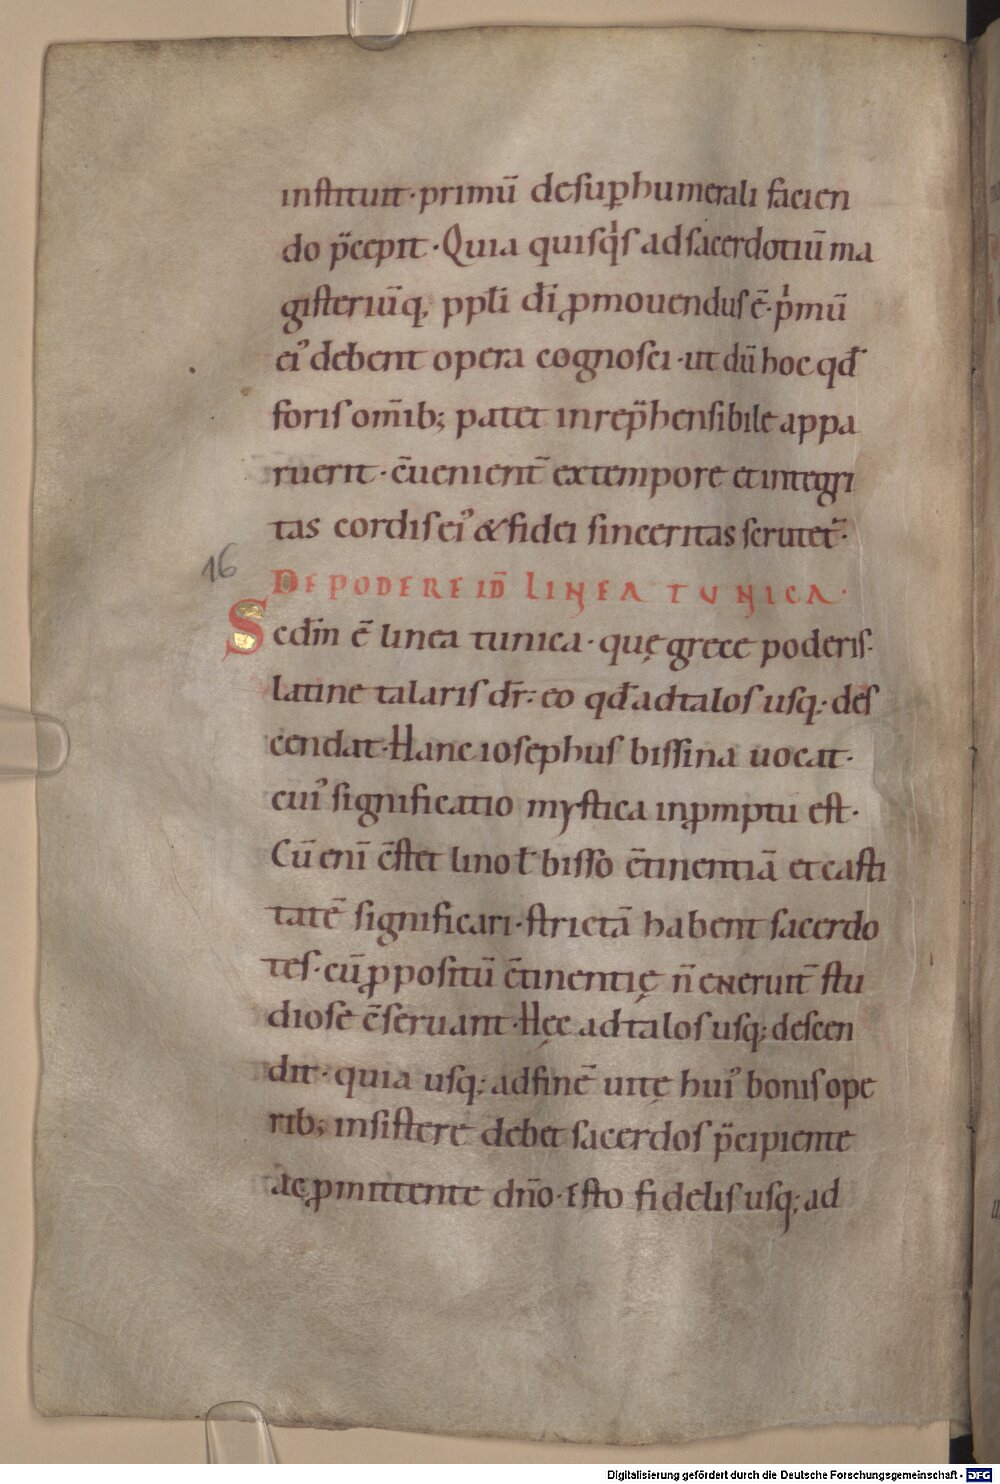 instituit· primū de sup̱humerali facien
do p̄cepit· Quia quisqͥs ad sacerdotiū ma
gisteriūq; pp̄li dī ꝓmouendus ē· pͥmū
ei᾽ debent opera cognosci· ut dū hoc qđ
foris om̄ib; patet inrep̄hensibile appa
ruerit· c̄uenient̄ ex tempore et integri
tas cordis ei᾽ & fidei sinceritas scrutet̄·
DE PODERE ID̄ LINEA TUNICA·
16
Scdm̄ ē linea tunica· quę grece poderis·
latine talaris dr̄· eo qđ ad talos usq; des
cendat· Hanc iosephus bissina uocat·
cui᾽ significatio mystica in ꝓmptu est·
Cū eni̅ c̄stet lino ł bisso c̄tinentiā et casti
tatē significari· strictā habent sacerdo
tes· cū ꝓpositū c̄tinentię n̄ eneruit̄ stu
diose c̄seruant· Hęc ad talos usq; descen
dit· quia usq; ad finē uitę hui᾽ bonis ope
rib; insistere debet sacerdos p̄cipiente
ac ꝓmittente dn̄o· Esto fidelis usq; ad
Digitalisierung gefördert durch die Deutsche Forschungsgemeinschaft - DFG